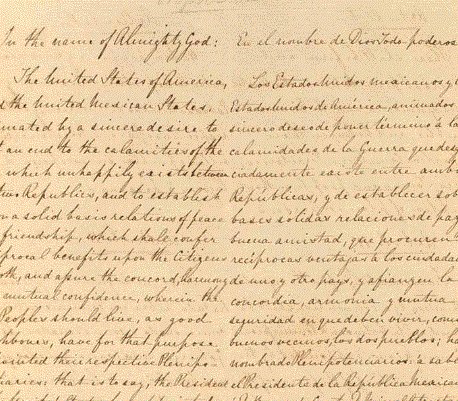 In the name of Almighty God:
The United States of America,
d the United Mexican States,
mated by a sincere desire to
t an end to the calamities of the
which unhappily exists between
two Republics, and to establish
n a solid basis relations of peace
friendship, which shall confer
iprocal benefits upon the citizens
oth, and assure the concord, harmony
mutual confidence, wherein the
Peoples should live, as good
hbours, have for that purpose
ointed their respective Plenipo-
iaries: that is to say, the President
En el nombre de Dios Todo-poderoso
Los Estados Unidos mexicanos y l
Estados Unidos de América, animados
sincero deseo de poner término á la
calamidades de la Guerra que desg
ciadamente existe entre amb
Repúblicas, y de establecer sob
bases sólidas relaciones de paz
buena amistad, que procuren
recíprocas ventajas á los ciudadan
de uno y otro pays, y afianzen la
concordia, armonia y mutua
seguridad en que deben vivir, como
buenos vecinos, los dos pueblos; ha
nombrado Plenipotenciarios: á sabe
el Presidente de la República Mexican